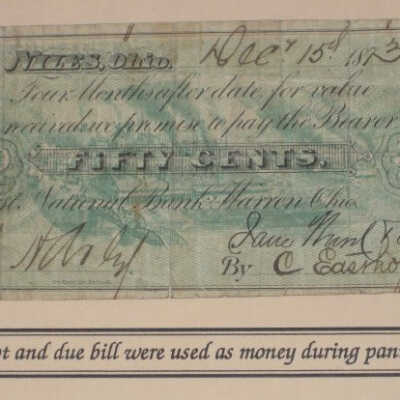 NILES, Ohio. Decr 15d 1873
Four Months after date, for value
received we promise to pay the Bearer
FIFTY CENTS.
National Bank Warren Ohio.
By C
t and due bill were used as money during pan